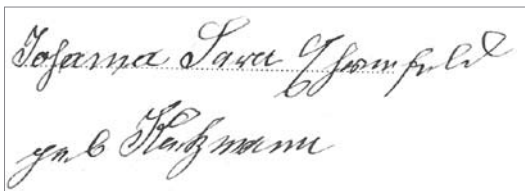 Johanna Sara Ehrenfeld
geb Katzmann